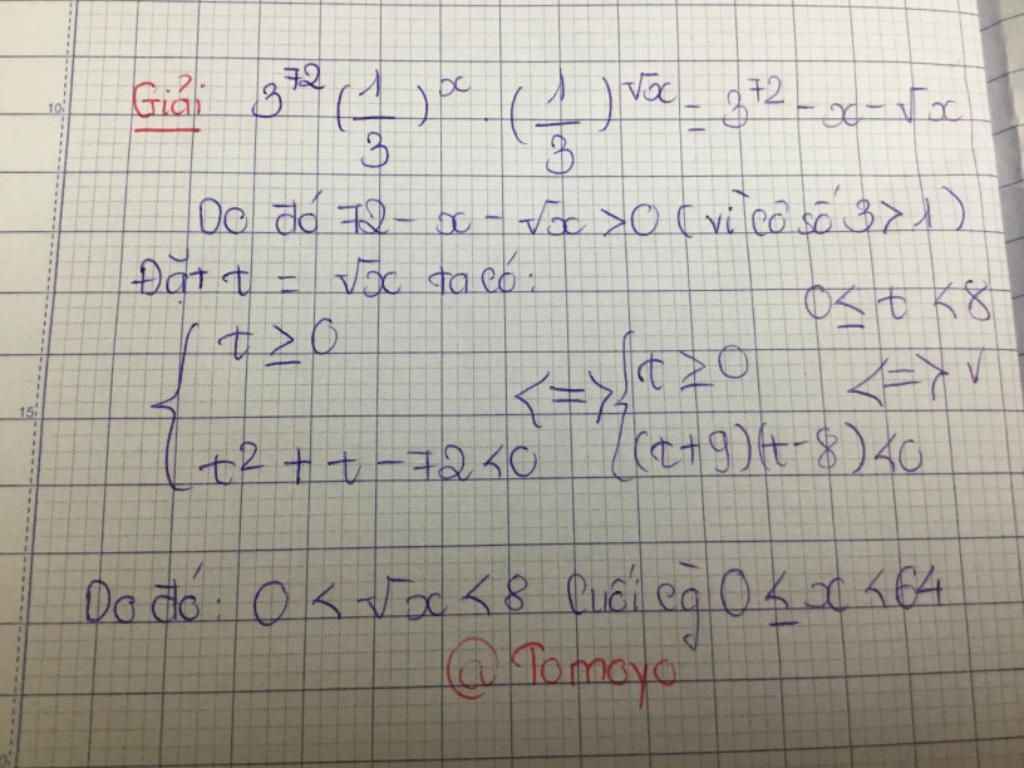 Giải 3^72 (1/3)^x . (1/3)^√x = 3^72 - x - √x
Do đó 72 - x - √x > 0 (vì cơ số 3 > 1)
Đặt t = √x ta có:
0 ≤ t < 8
{ t ≥ 0 <=> { t ≥ 0 <=> √
t² + t - 72 < 0 (t+9)(t-8) < 0
Do đó: 0 < √x < 8 Cuối cg̀ 0 ≤ x < 64
@ Tomoyo